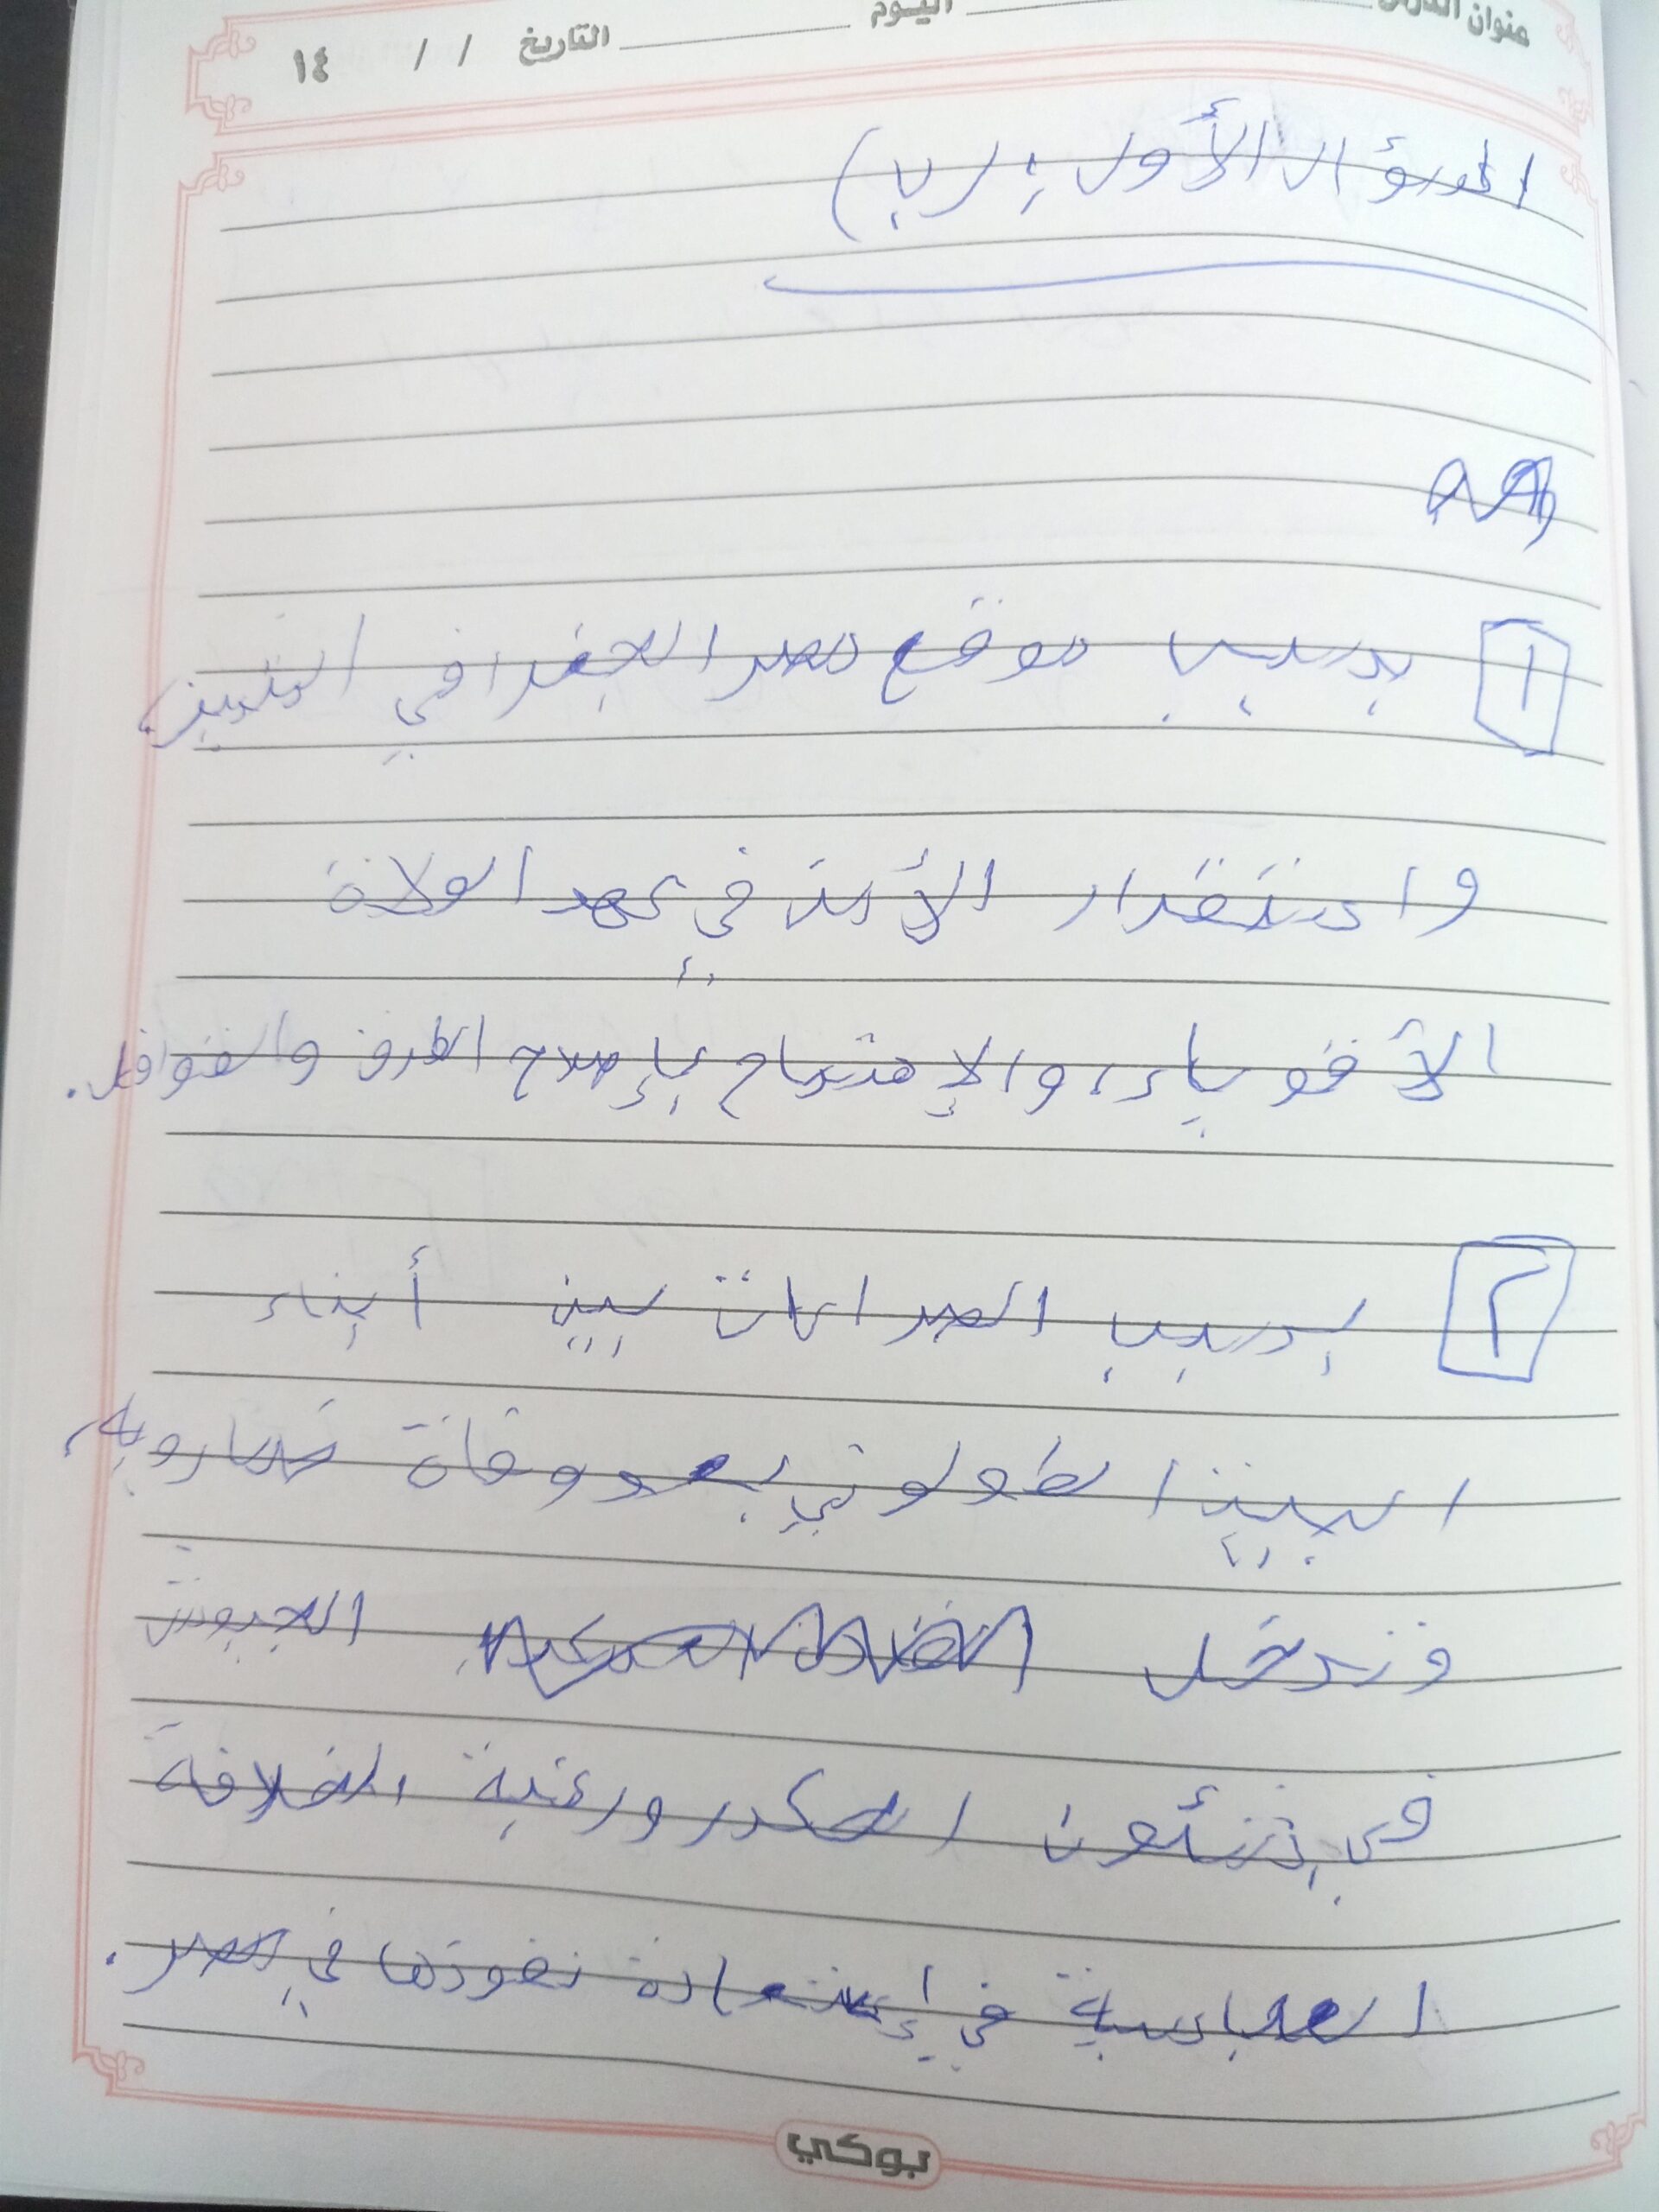 عنوان الدرس اليوم
التاريخ / / ١٤
السؤال الأول: (ب)
١ بسبب موقع مصر الجغرافي المتميز،
واستقرار الأمن في عهد الولاة
الأقوياء، والإهتمام بإصلاح الطرق والقوافل.
٢ بسبب الصراعات بين أبناء
البيت الطولوني بعد وفاة خمارويه،
وتدخل الجيوش
في شئون الحكم ورغبة الخلافة
العباسية في إستعادة نفوذها في مصر.
بوكي